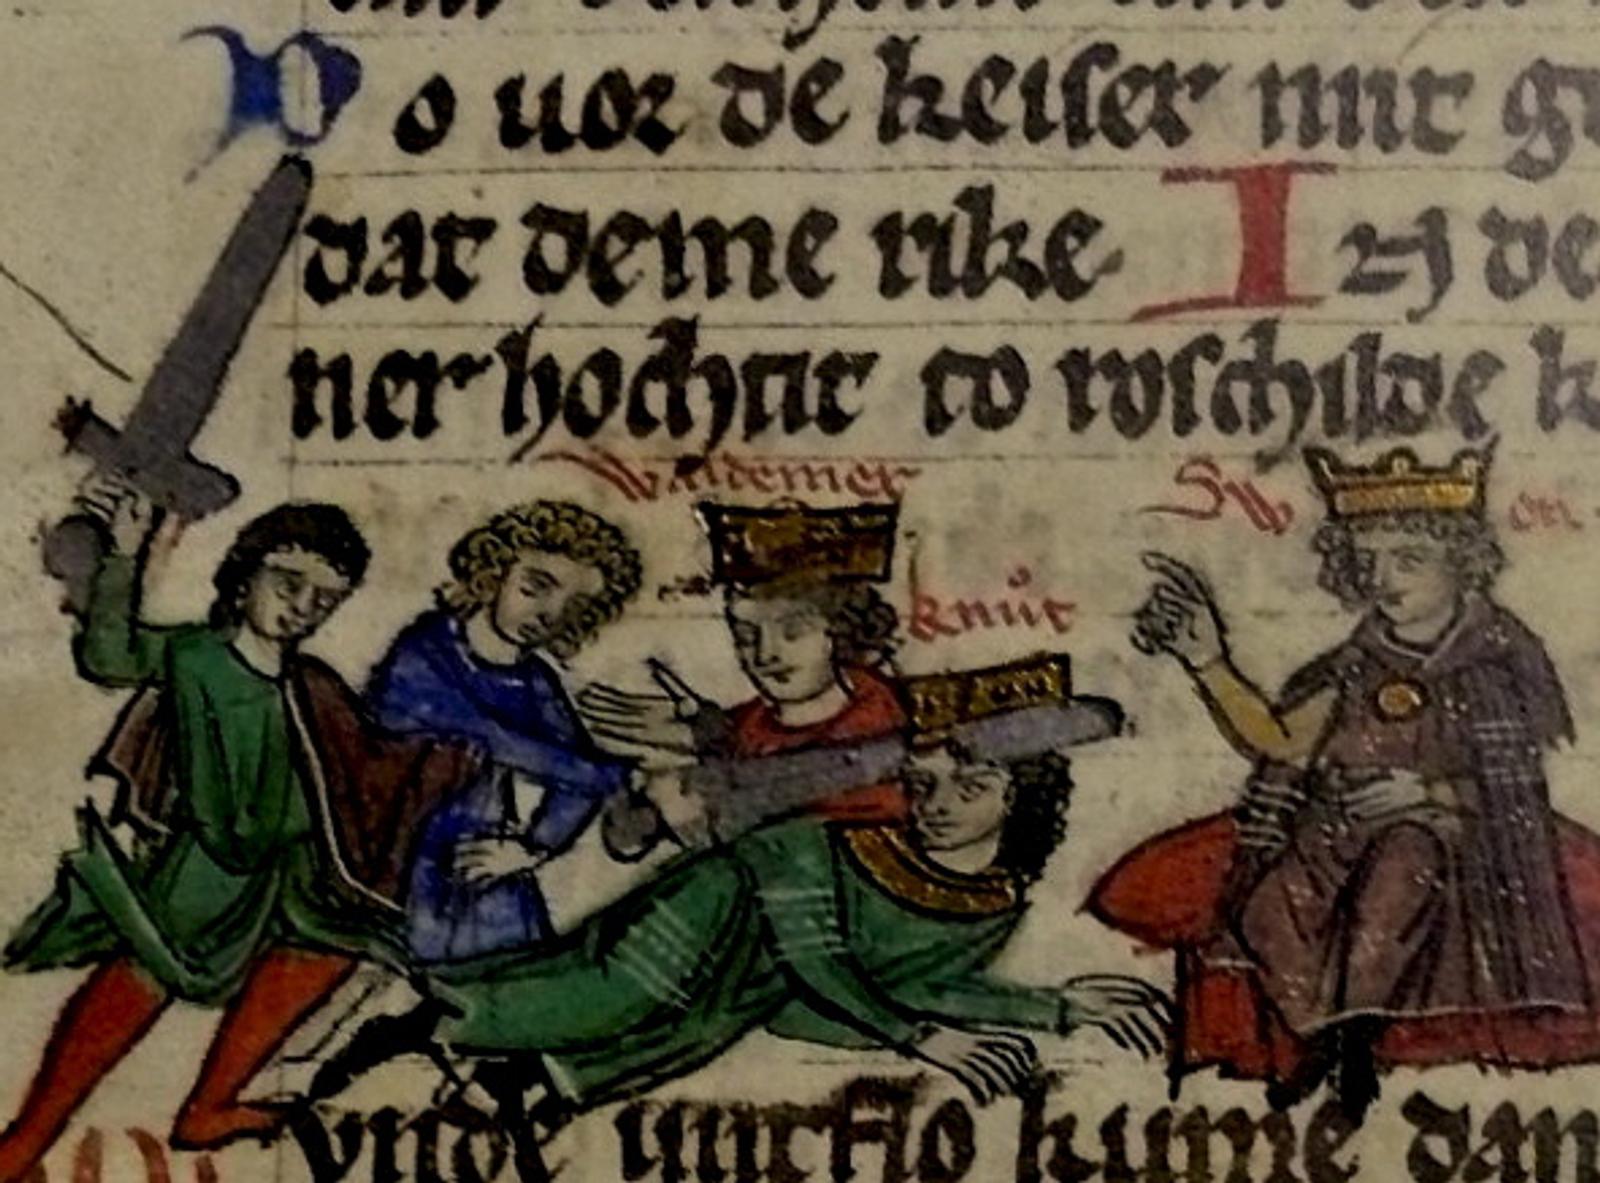 Do uor de keiser mit
dat deme rike Iz de
ner hochtit to roschilde
Waldemer
Swen
knůt
vnde
kume dan